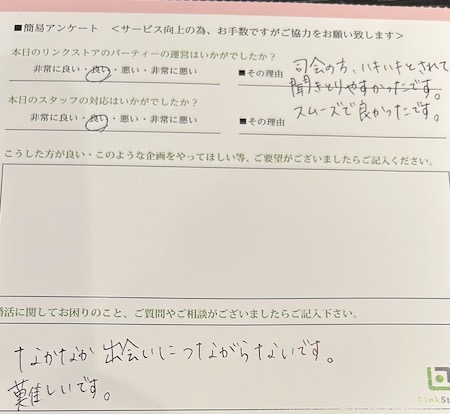 ■簡易アンケート ＜サービス向上の為、お手数ですがご協力をお願い致します＞
本日のリンクストアのパーティーの運営はいかがでしたか？
非常に良い・良い・悪い・非常に悪い
■その理由
司会の方、ハキハキとされて
聞きとりやすかったです。
スムーズで良かったです。
本日のスタッフの対応はいかがでしたか？
非常に良い・良い・悪い・非常に悪い
■その理由
こうした方が良い・このような企画をやってほしい等、ご要望がございましたらご記入ください。
婚活に関してお困りのこと、ご質問やご相談がございましたらご記入下さい。
なかなか出会いにつながらないです。
難しいです。